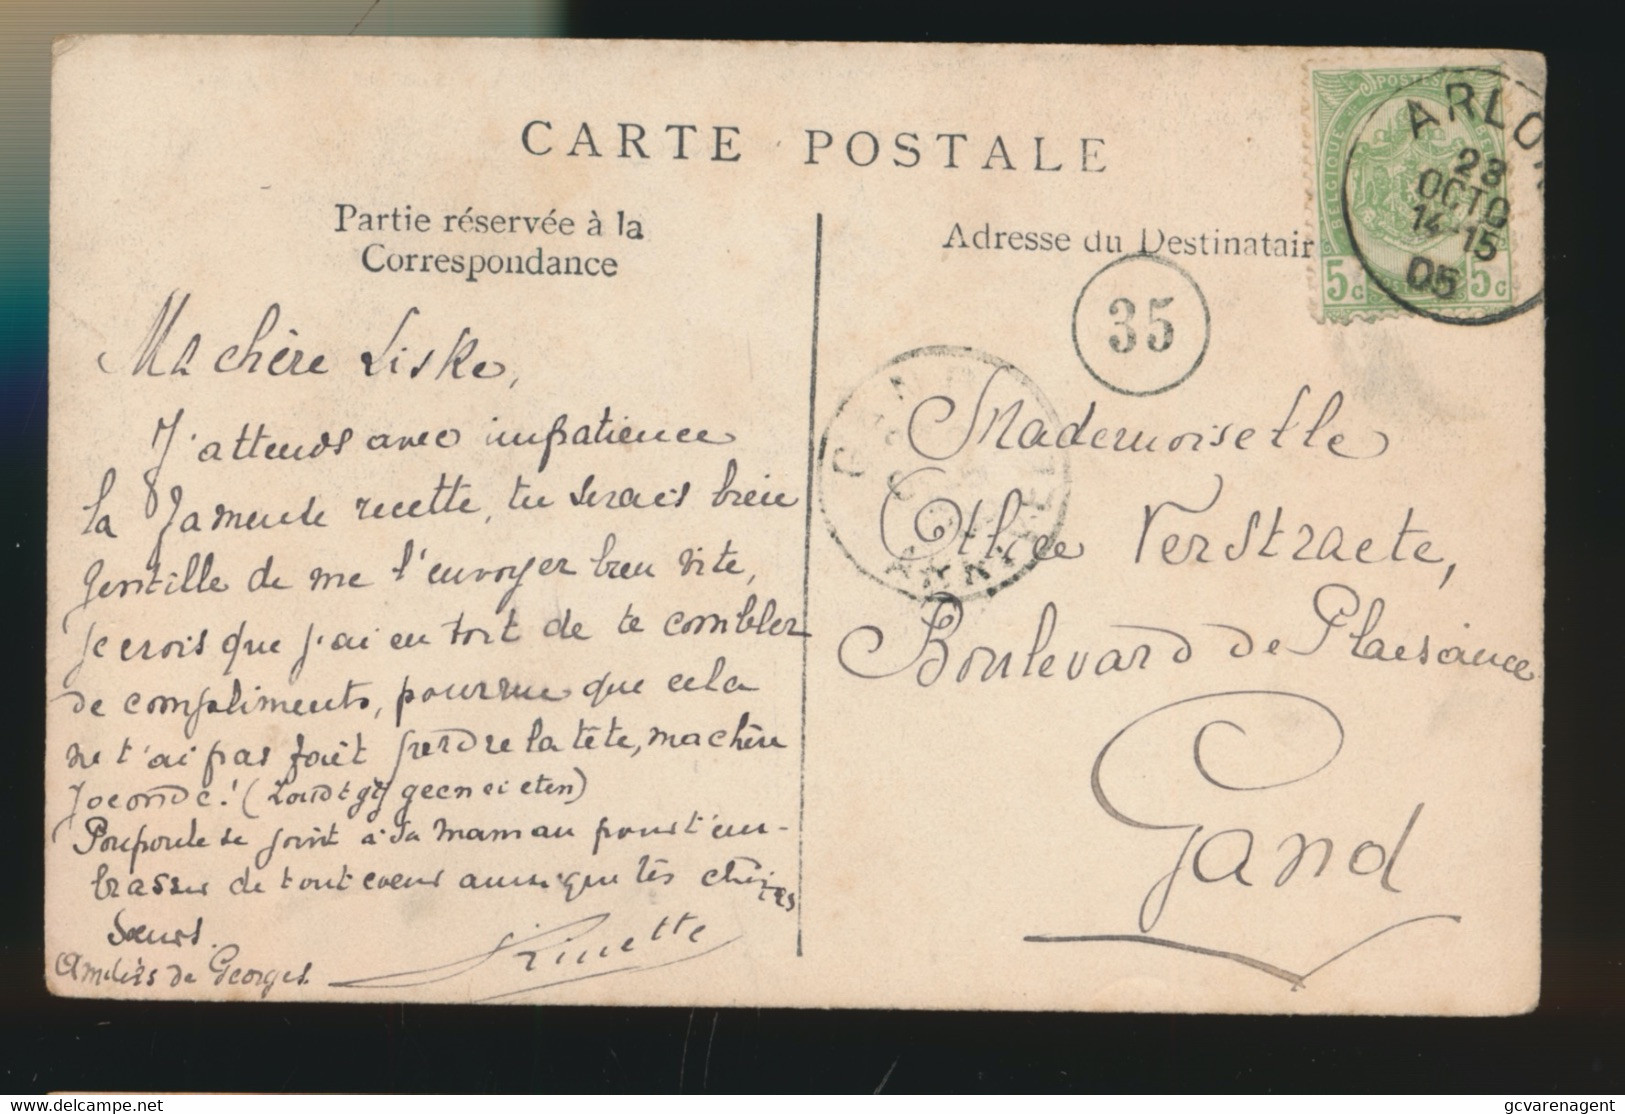 CARTE POSTALE
Partie réservée à la
Correspondance
Ma chère Liske,
J'attends avec impatience
la fameuse recette, tu serais bien
gentille de me l'envoyer bien vite,
je crois que j'ai eu tort de te combler
de compliments, pourvu que cela
ne t'ai pas fait perdre la tête, ma chère
Joconde! (Zoudt gij geen ei eten)
Poupoule se joint à sa maman pour t'em-
brasser de tout coeur ainsi que tes chères
soeurs.
Amitiés de Georges.
Adresse du Destinatair
35
Mademoiselle
Verstraete,
Boulevard de Plaisance
Gand
POSTES
BELGIQUE
5c 5c
ARLON
23
OCTO
14-15
05
https://www.delcampe.net
gcvarenagent